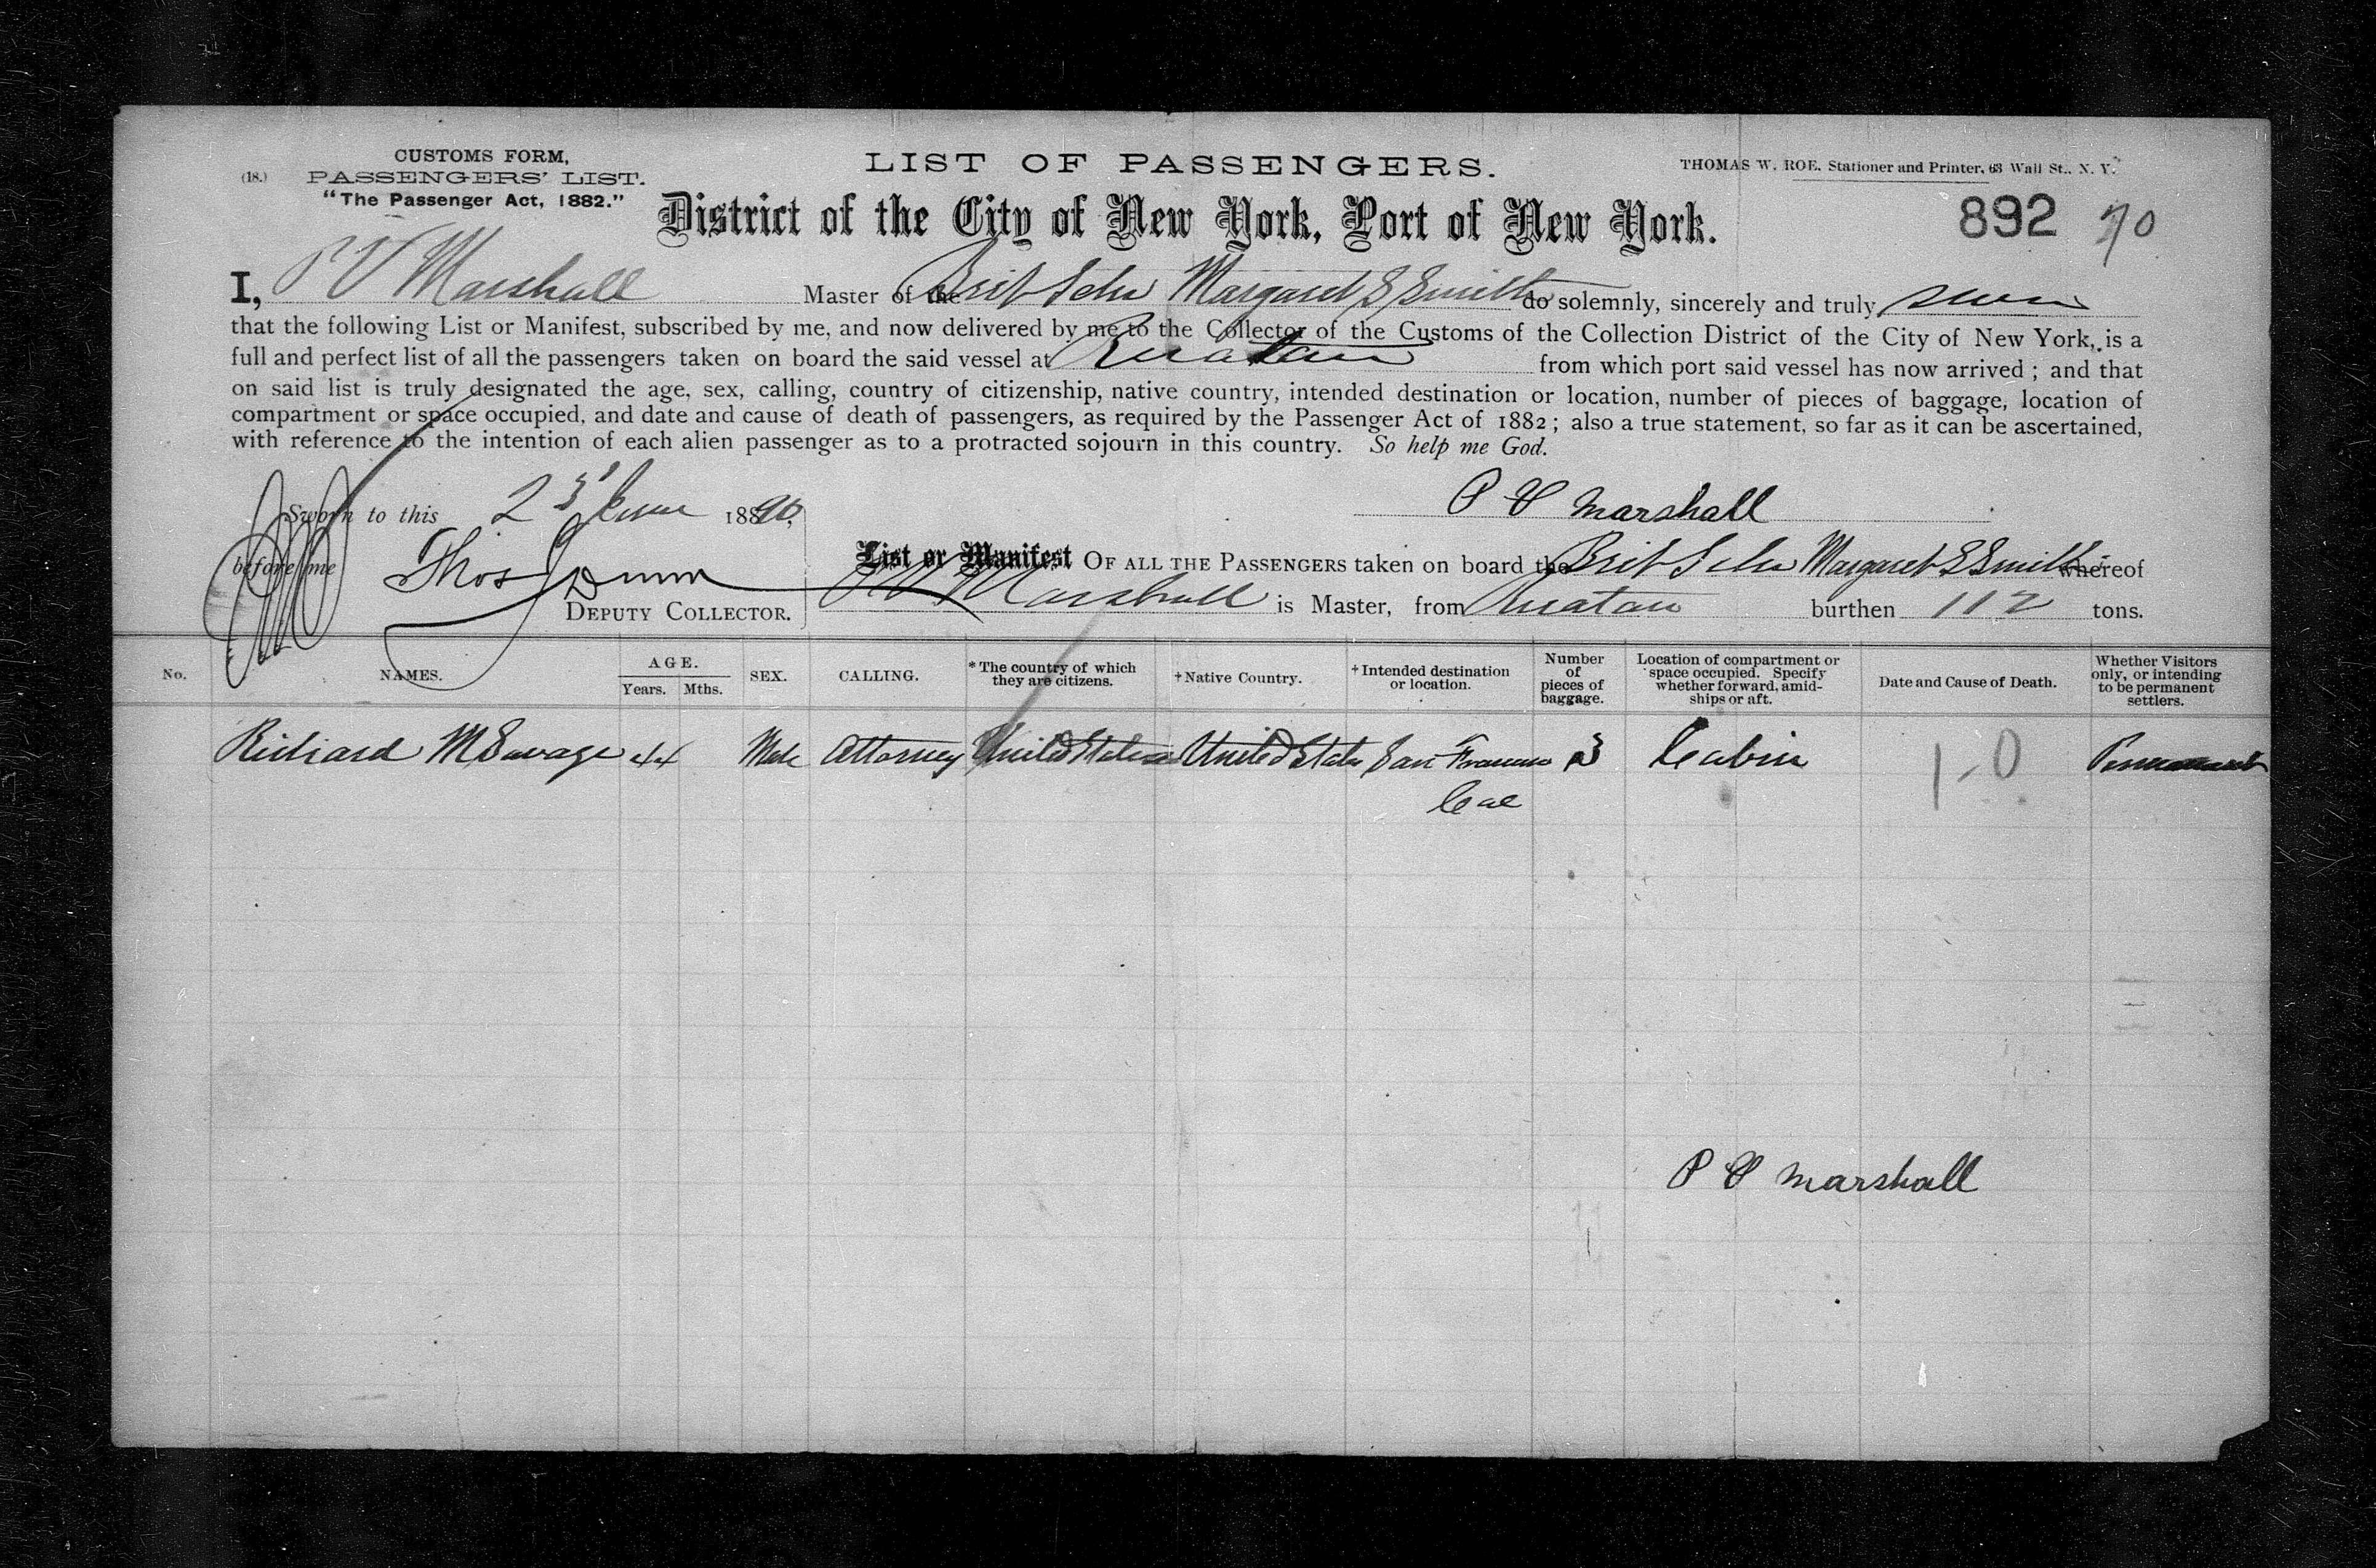 CUSTOMS FORM,
(18.) PASSENGERS' LIST.
"The Passenger Act, 1882."
LIST OF PASSENGERS.
THOMAS W. ROE. Stationer and Printer, 63 Wall St., N. Y.
District of the City of New York, Port of New York.
892 90
I, P V Marshall Master of the Brit Schr Margaret S Smith do solemnly, sincerely and truly swear
that the following List or Manifest, subscribed by me, and now delivered by me to the Collector of the Customs of the Collection District of the City of New York, is a
full and perfect list of all the passengers taken on board the said vessel at Ruatan from which port said vessel has now arrived ; and that
on said list is truly designated the age, sex, calling, country of citizenship, native country, intended destination or location, number of pieces of baggage, location of
compartment or space occupied, and date and cause of death of passengers, as required by the Passenger Act of 1882 ; also a true statement, so far as it can be ascertained,
with reference to the intention of each alien passenger as to a protracted sojourn in this country. So help me God.
Sworn to this 23 June 1890,
P V Marshall
before me Thos Dunn
DEPUTY COLLECTOR.
List or Manifest OF ALL THE PASSENGERS taken on board the Brit Schr Margaret S Smith whereof
P V Marshall is Master, from Ruatan burthen 112 tons.
No. NAMES. AGE. Years. Mths. SEX. CALLING. * The country of which they are citizens. † Native Country. † Intended destination or location. Number of pieces of baggage. Location of compartment or space occupied. Specify whether forward, amidships or aft. Date and Cause of Death. Whether Visitors only, or intending to be permanent settlers.
Richard M Savage 44 Male Attorney United States United States San Francisco 3 Cabin 1-0 Permanent
Cal
P V Marshall